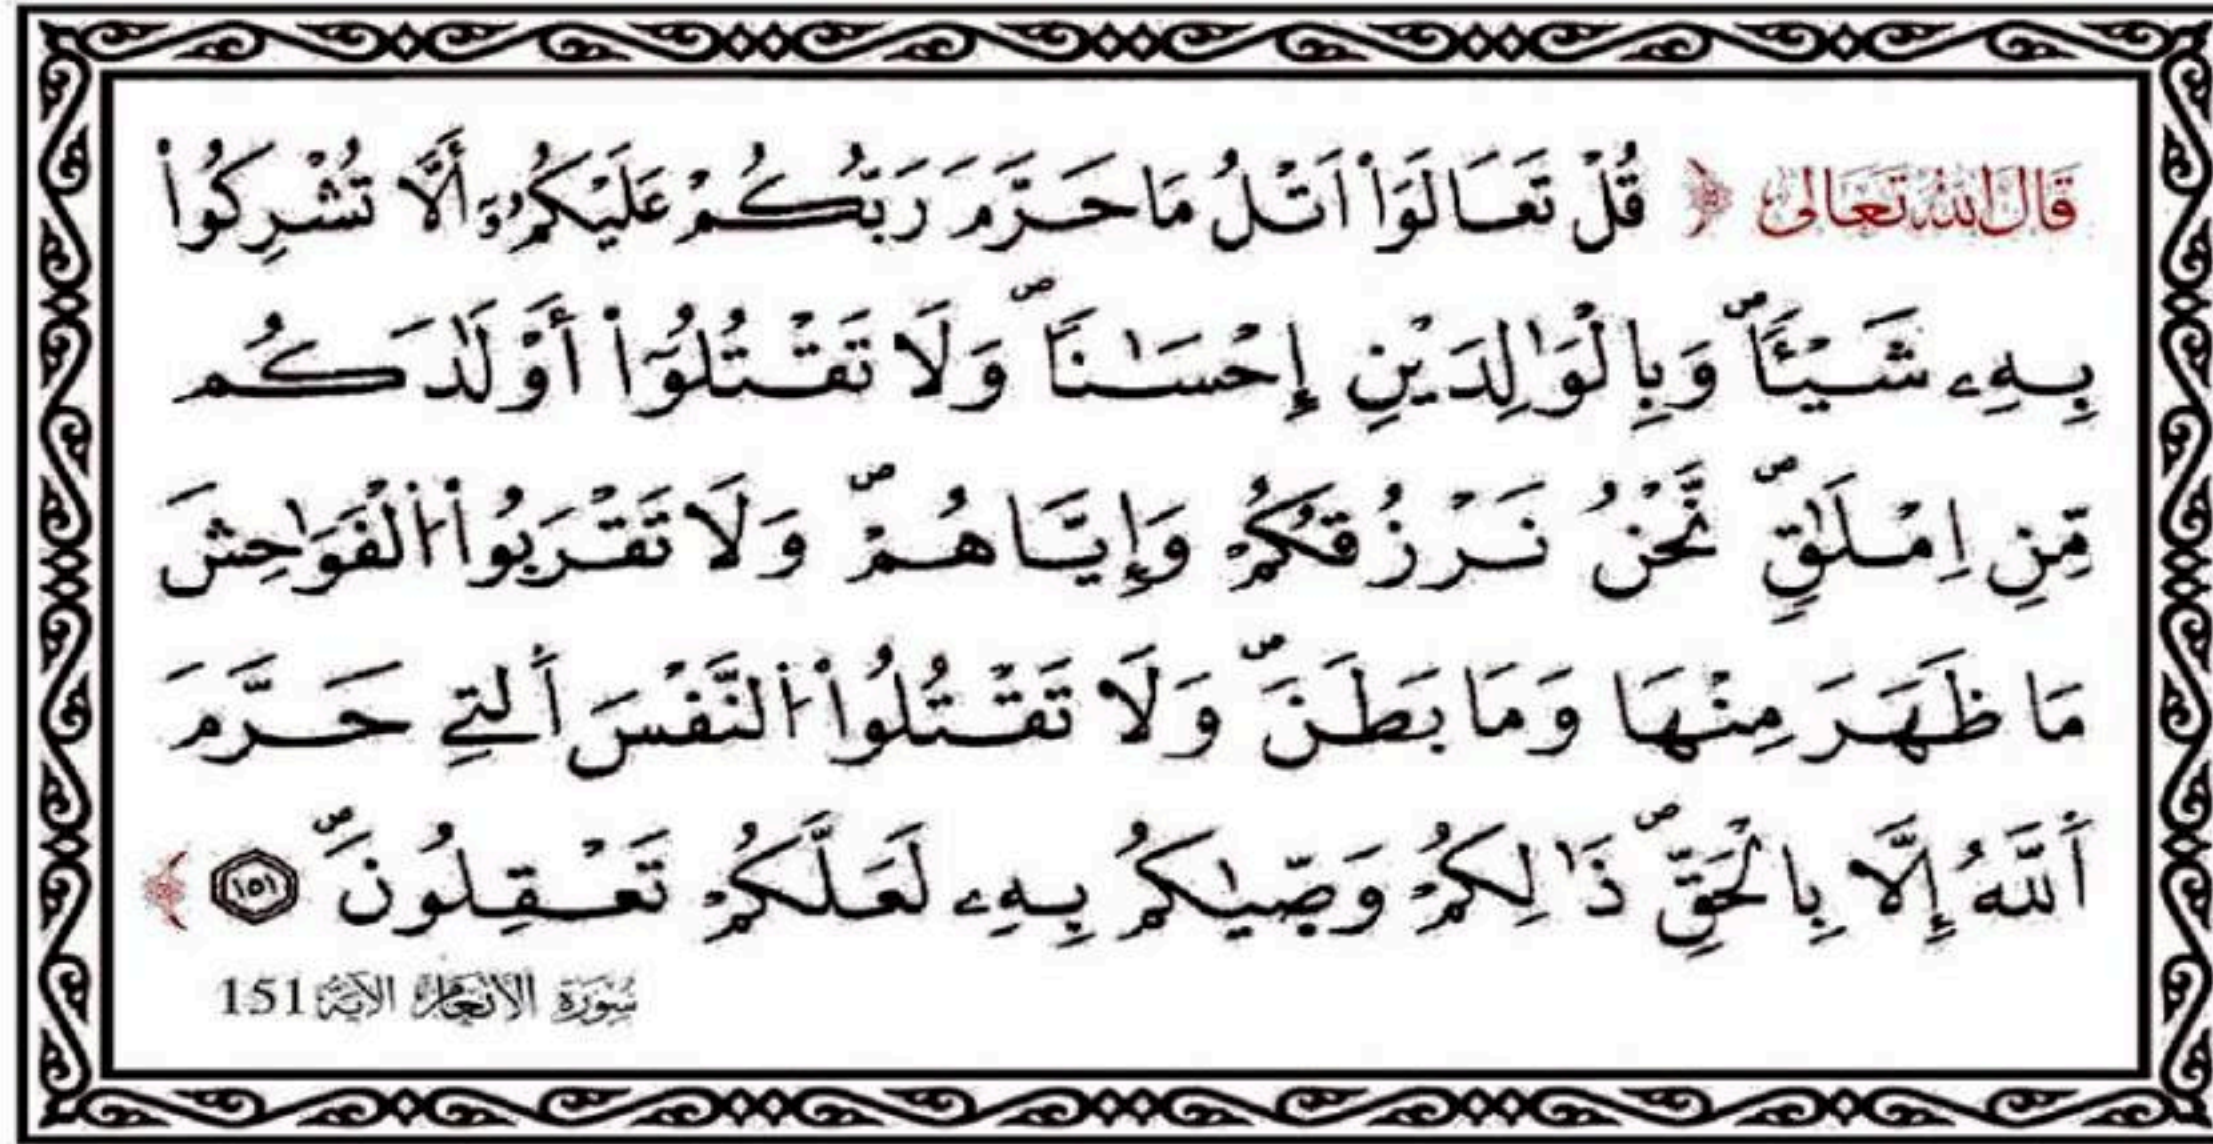 قَالَ اللهُ تَعَالَى ﴿ قُلْ تَعَالَوَاْ اَتْلُ مَا حَرَّمَ رَبُّكُمْ عَلَيْكُمُۥٓ أَلَّا تُشْرِكُواْ
بِهِۦ شَيْـٔاًۖ وَبِالْوَٰلِدَيْنِ إِحْسَٰناًۖ وَلَا تَقْتُلُوٓاْ أَوْلَٰدَكُم
مِّنِ اِمْلَٰقٍۖ نَّحْنُ نَرْزُقُكُمْ وَإِيَّاهُمْۖ وَلَا تَقْرَبُواْ اُ۬لْفَوَٰحِشَ
مَا ظَهَرَ مِنْهَا وَمَا بَطَنَۖ وَلَا تَقْتُلُواْ اُ۬لنَّفْسَ اَ۬لتِے حَرَّمَ
اَ۬للَّهُ إِلَّا بِالْحَقِّۖ ذَٰلِكُمْ وَصّ۪يٰكُم بِهِۦ لَعَلَّكُمْ تَعْقِلُونَۖ ١٥١ ﴾
سُورَةُ الأَنْعَامِ الآيَةُ 151